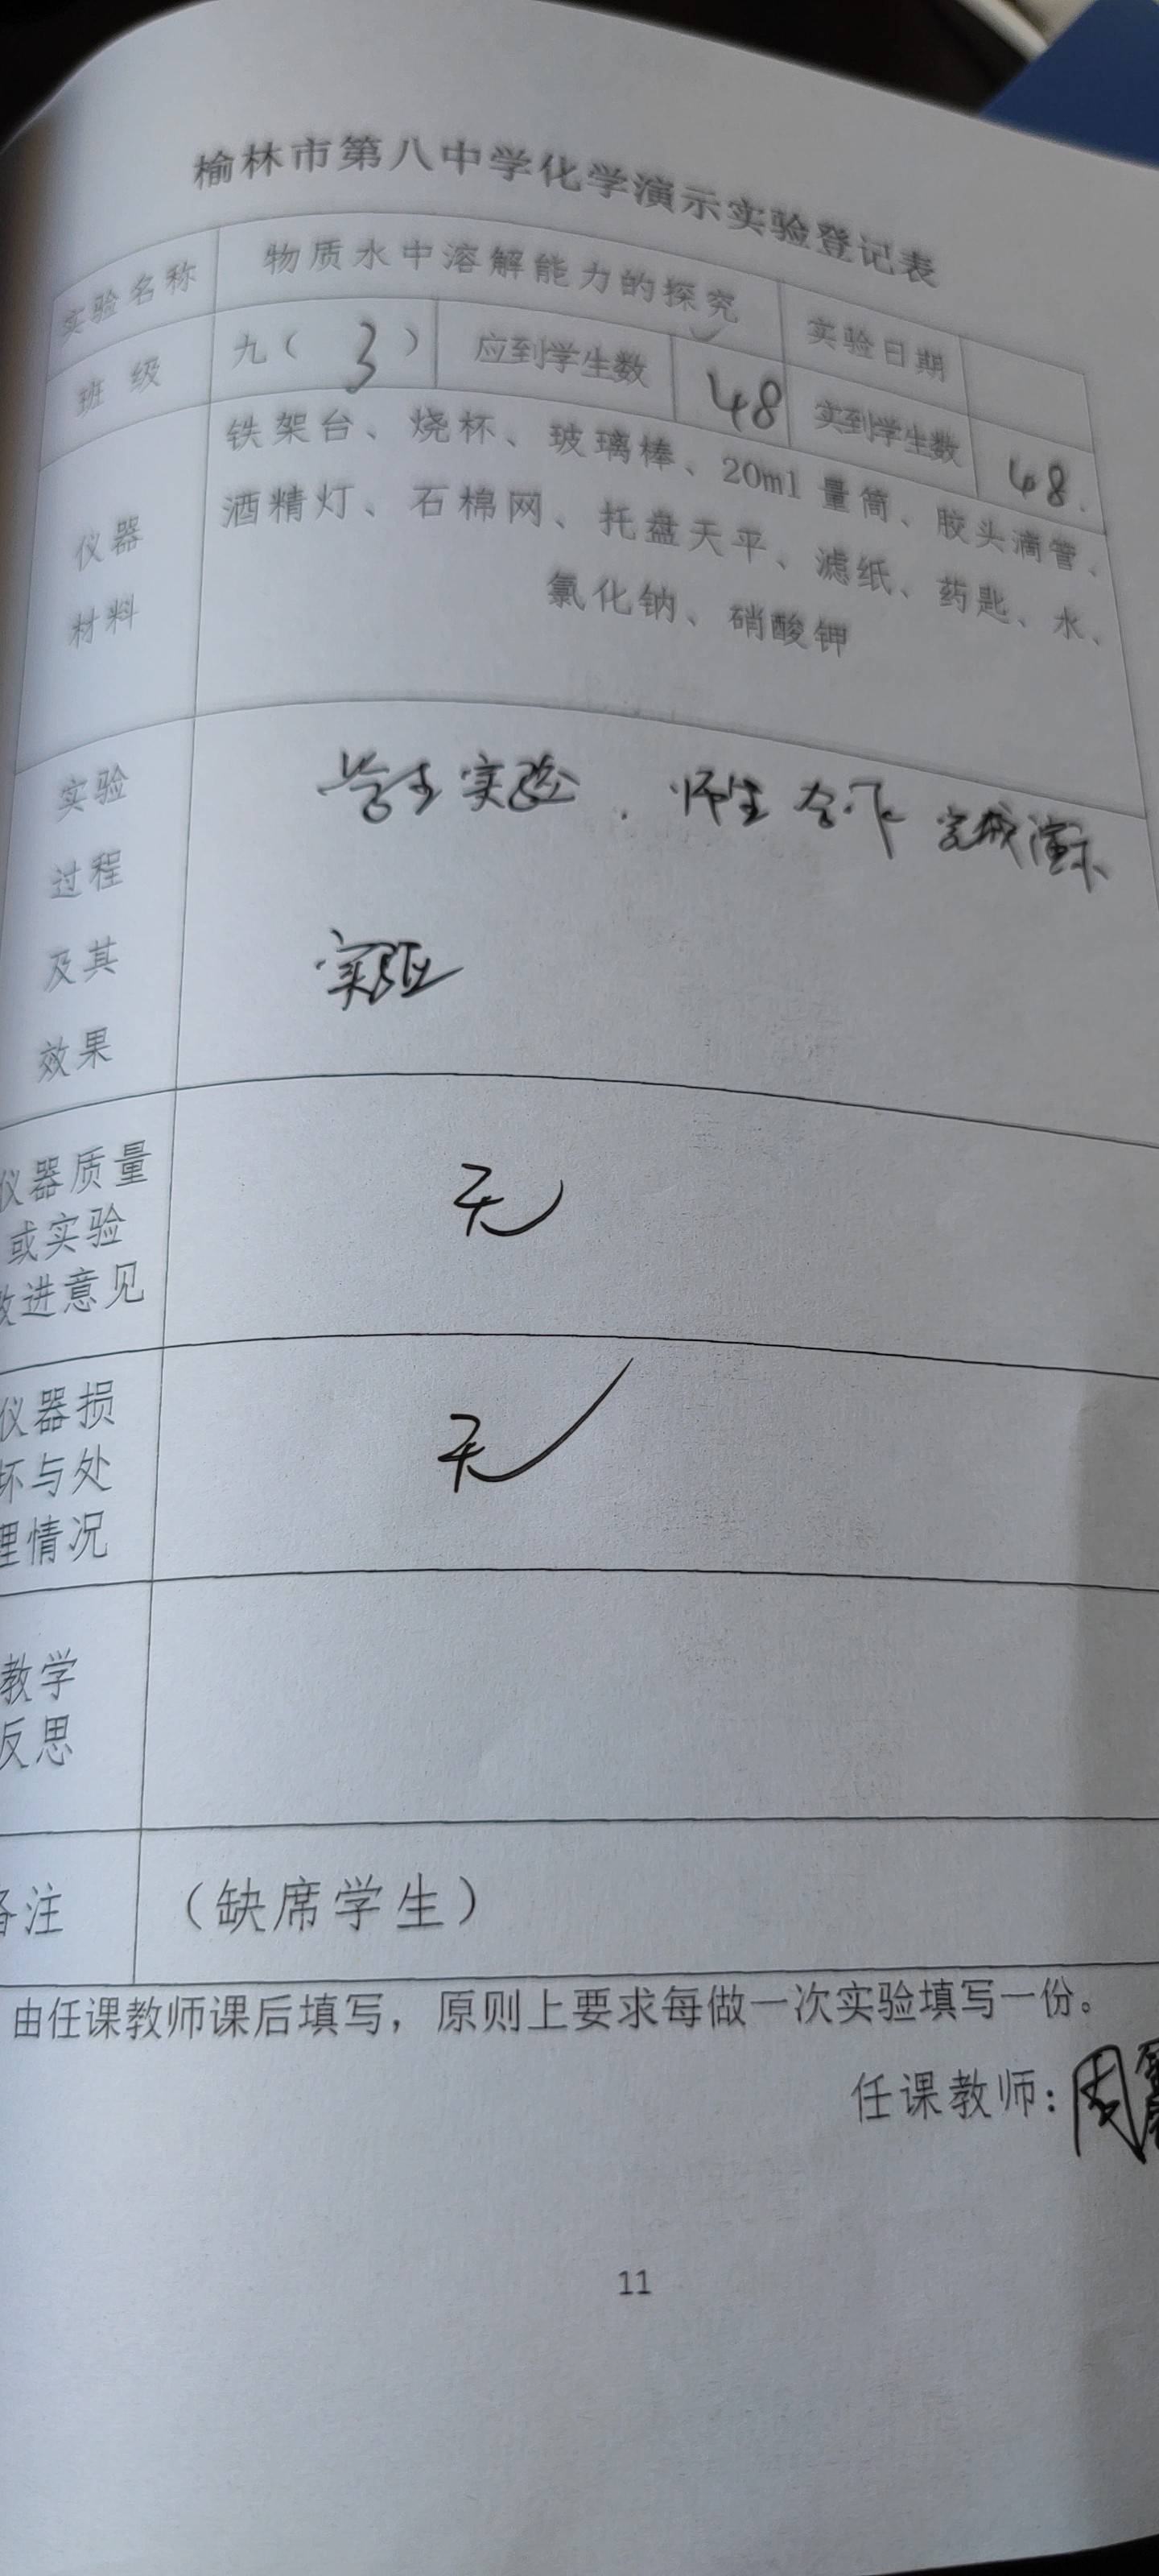 榆林市第八中学化学演示实验登记表
实验名称 物质水中溶解能力的探究 实验日期
班 级 九( 3 ) 应到学生数 48 实到学生数 48.
仪器
材料
铁架台、烧杯、玻璃棒、20ml 量筒、胶头滴管、
酒精灯、石棉网、托盘天平、滤纸、药匙、水、
氯化钠、硝酸钾
实验
过程
及其
效果
学生实验,师生合作完成演示
实验
仪器质量
或实验
改进意见
无
仪器损
坏与处
理情况
无
教学
反思
备注 (缺席学生)
由任课教师课后填写,原则上要求每做一次实验填写一份。
任课教师:周
11